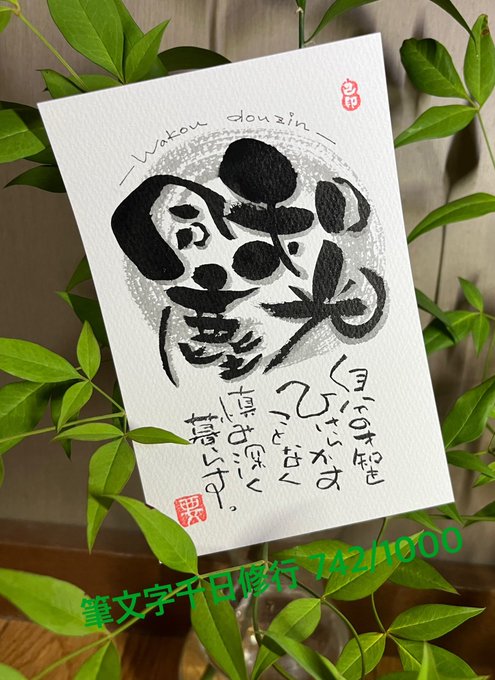 — Wakou douzin —
和光
同塵
自分の才智を
ひけらかす
ことなく
慎み深く
暮らす。
筆文字千日修行 742/1000